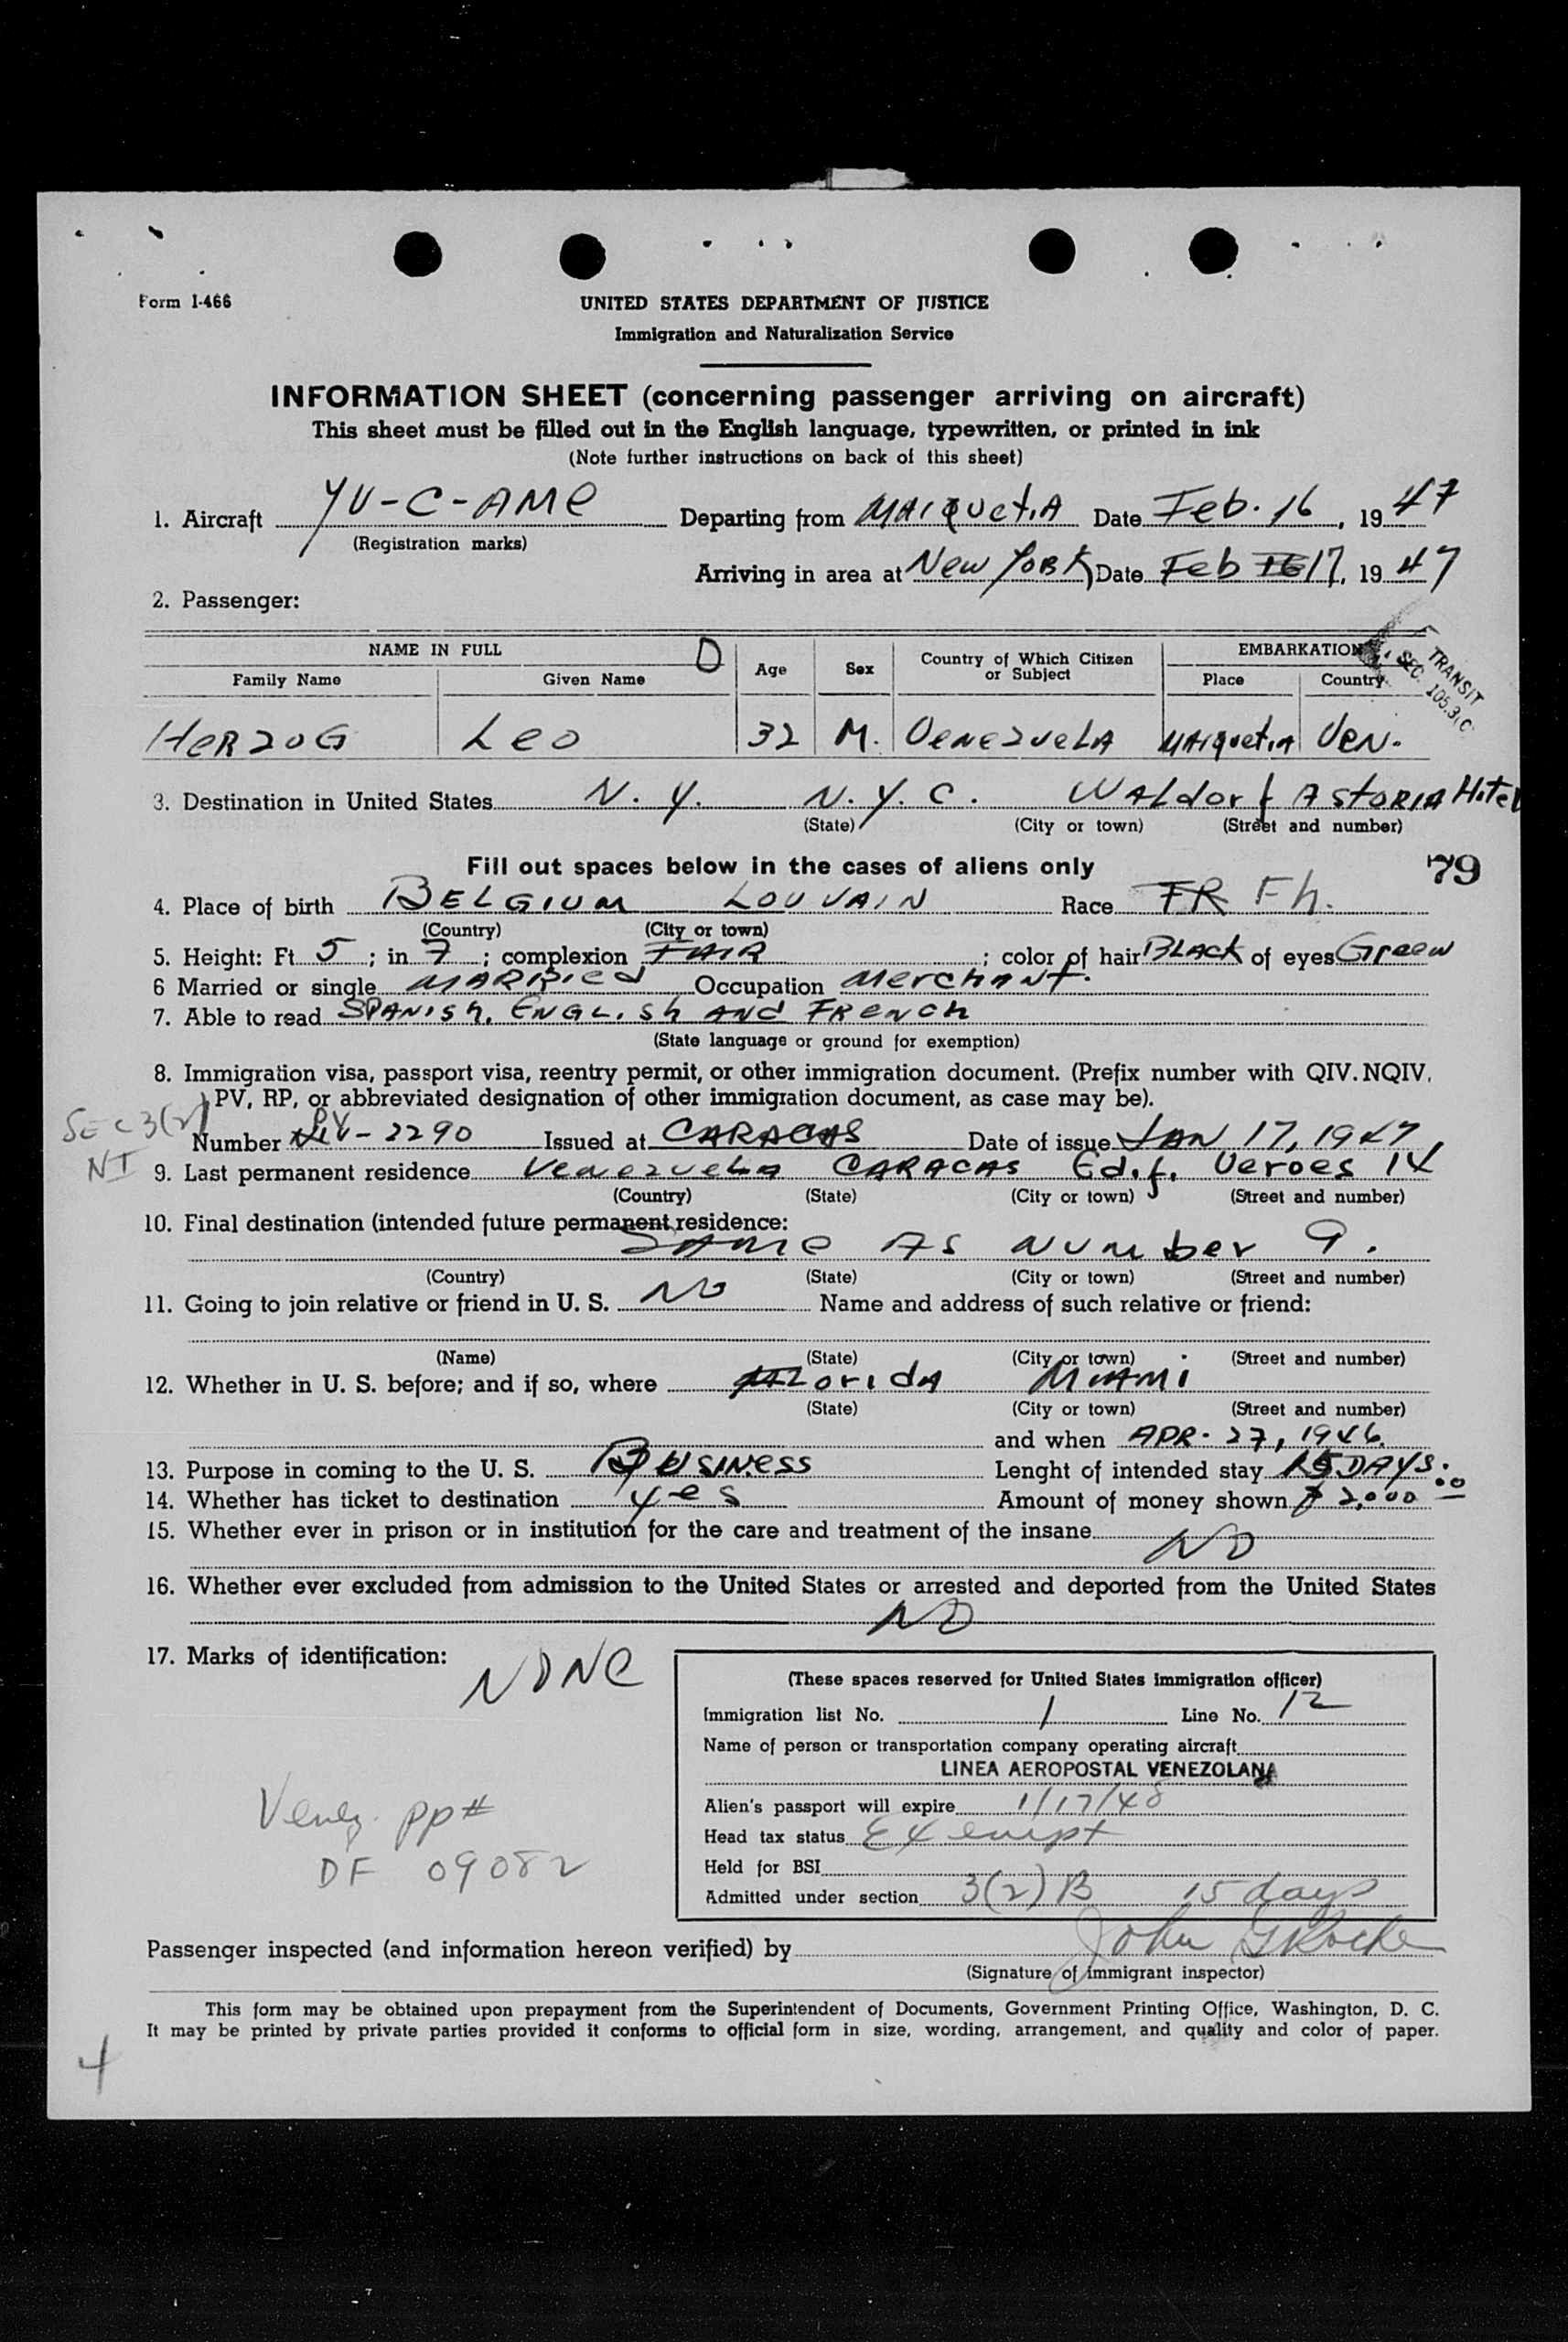 Form I-466
UNITED STATES DEPARTMENT OF JUSTICE
Immigration and Naturalization Service
INFORMATION SHEET (concerning passenger arriving on aircraft)
This sheet must be filled out in the English language, typewritten, or printed in ink
(Note further instructions on back of this sheet)
1. Aircraft YV-C-AME Departing from MAIQUETIA Date Feb. 16, 1947
(Registration marks)
Arriving in area at New YORK Date Feb 16 17, 1947
2. Passenger:
NAME IN FULL D Age Sex Country of Which Citizen or Subject EMBARKATION
Family Name Given Name Place Country
TRANSIT
SEC. 105.3(C)
HERZOG Leo 32 M. VENEZUELA MAIQUETIA VEN.
3. Destination in United States N.Y. N.Y.C. WALdorf ASTORIA Hotel
(State) (City or town) (Street and number)
Fill out spaces below in the cases of aliens only 79
4. Place of birth BELGIUM LOUVAIN Race FR Fh.
(Country) (City or town)
5. Height: Ft. 5; in 7; complexion FAIR; color of hair BLACK of eyes Green
6 Married or single MARRIED Occupation MerchANT.
7. Able to read SPANISh, ENGLISh AND FRENCh
(State language or ground for exemption)
8. Immigration visa, passport visa, reentry permit, or other immigration document. (Prefix number with QIV. NQIV,
PV, RP, or abbreviated designation of other immigration document, as case may be).
SEC 3(2) PV
Number - 2290 Issued at CARACAS Date of issue JAN 17, 1947,
NI 9. Last permanent residence Venezuela CARACAS Edif. Veroes 14
(Country) (State) (City or town) (Street and number)
10. Final destination (intended future permanent residence:
SAME AS NUMber 9.
(Country) (State) (City or town) (Street and number)
11. Going to join relative or friend in U. S. NO Name and address of such relative or friend:
(Name) (State) (City or town) (Street and number)
12. Whether in U. S. before; and if so, where FLoridA MIAMI
(State) (City or town) (Street and number)
and when APR. 27, 1946.
13. Purpose in coming to the U. S. BUSINESS Lenght of intended stay 15 DAYS.
14. Whether has ticket to destination yes Amount of money shown $ 2,000.00
15. Whether ever in prison or in institution for the care and treatment of the insane NO
16. Whether ever excluded from admission to the United States or arrested and deported from the United States
NO
17. Marks of identification: NONE
(These spaces reserved for United States immigration officer)
Immigration list No. 1 Line No. 12
Name of person or transportation company operating aircraft
LINEA AEROPOSTAL VENEZOLANA
Alien's passport will expire 1/17/48
Head tax status Exempt
Held for BSI
Admitted under section 3(2)B 15 days
Venez. pp#
DF 09082
Passenger inspected (and information hereon verified) by John G Roche
(Signature of immigrant inspector)
This form may be obtained upon prepayment from the Superintendent of Documents, Government Printing Office, Washington, D. C.
It may be printed by private parties provided it conforms to official form in size, wording, arrangement, and quality and color of paper.
4